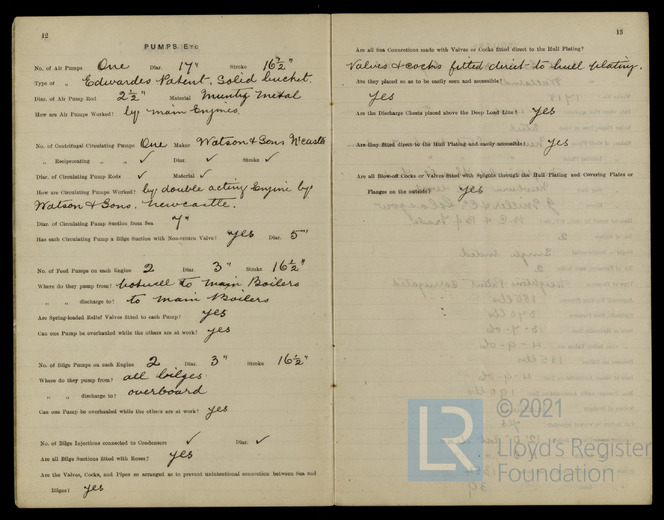 12
PUMPS, ETC
No. of Air Pumps One Diar. 17" Stroke 16½"
Type of „ Edwardes Patent. Solid bucket.
Diar. of Air Pump Rod 2½" Material Muntz Metal
How are Air Pumps Worked? by main Engines.
No. of Centrifugal Circulating Pumps One Maker Watson & Sons N'castle
„ Reciprocating „ „ ✓ Diar. ✓ Stroke ✓
Diar. of Circulating Pump Rods ✓ Material ✓
How are Circulating Pumps Worked? by double acting Engine by
Watson & Sons. Newcastle.
Diar. of Circulating Pump Suction from Sea 7"
Has each Circulating Pump a Bilge Suction with Non-return Valve? yes Diar. 5"
No. of Feed Pumps on each Engine 2 Diar. 3" Stroke 16½"
Where do they pump from? hotwell to main Boilers
„ „ discharge to? to main Boilers
Are Spring-loaded Relief Valves fitted to each Pump? yes
Can one Pump be overhauled while the others are at work? yes
No. of Bilge Pumps on each Engine 2 Diar. 3" Stroke 16½"
Where do they pump from? all bilges
„ „ discharge to? overboard
Can one Pump be overhauled while the others are at work? yes
No. of Bilge Injections connected to Condensers ✓ Diar. ✓
Are all Bilge Suctions fitted with Roses? yes
Are the Valves, Cocks, and Pipes so arranged as to prevent unintentional connection between Sea and
Bilges? yes
13
Are all Sea Connections made with Valves or Cocks fitted direct to the Hull Plating?
Valves & cocks fitted direct to hull plating.
Are they placed so as to be easily seen and accessible?
yes
Are the Discharge Chests placed above the Deep Load Line? yes
Are they fitted direct to the Hull Plating and easily accessible? yes
Are all Blow-off Cocks or Valves fitted with Spigots through the Hull Plating and Covering Plates or
Flanges on the outside? yes
LR
© 2021
Lloyd's Register
Foundation